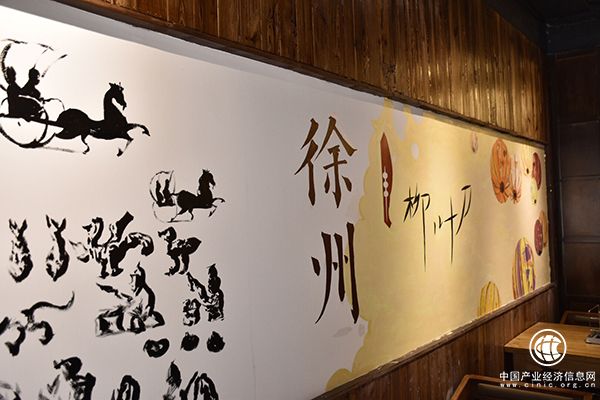 徐州
柳叶刀
中国产业经济信息网
www.cinic.org.cn